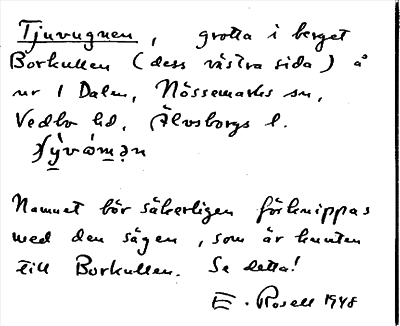 Tjuvugnen, grotta i berget
Borkullen (dess västra sida) å
nr 1 Dalen, Nössemarks sn,
Vedbo hd, Älvsborgs l.
Namnet bör säkerligen förknippas
med den sägen, som är knuten
till Borkullen. Se detta!
E. Rosell 1948